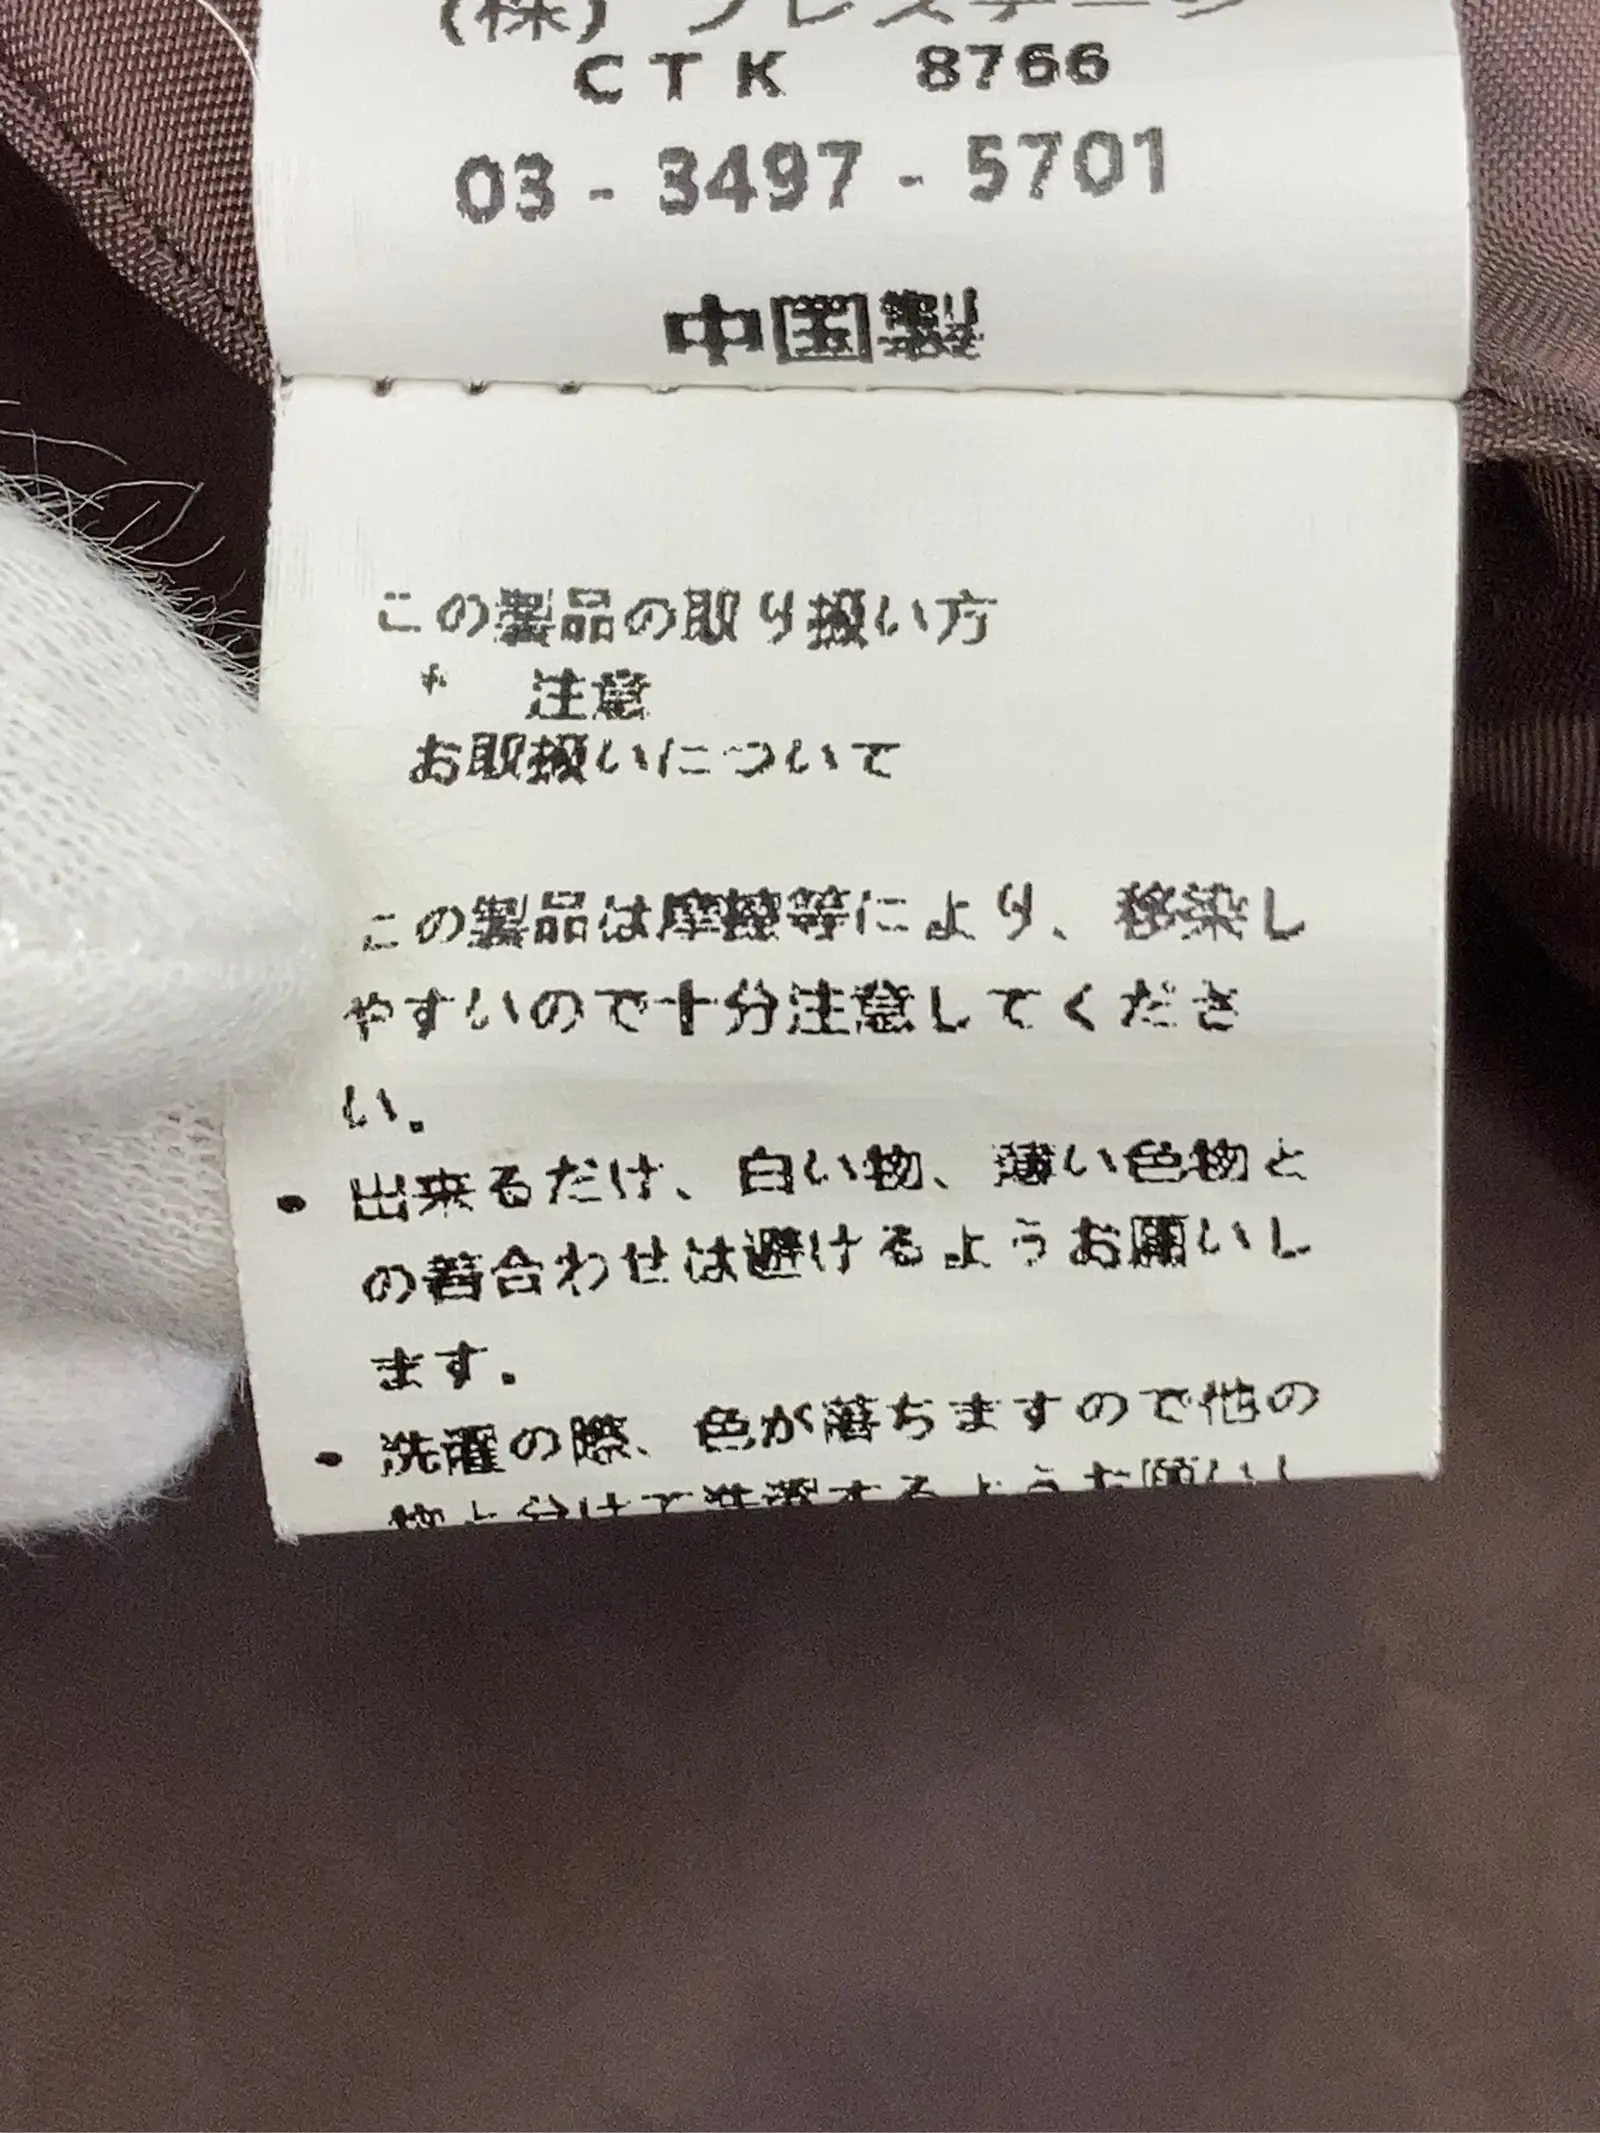 (株) プレステージ
CTK 8766
03-3497-5701
中国製
この製品の取り扱い方
* 注意
お取扱いについて
この製品は摩擦等により、移染し
やすいので十分注意してくださ
い。
・出来るだけ、白い物、薄い色物と
の着合わせは避けるようお願いし
ます。
・洗濯の際、色が落ちますので他の
物と分けて洗濯するようお願いし